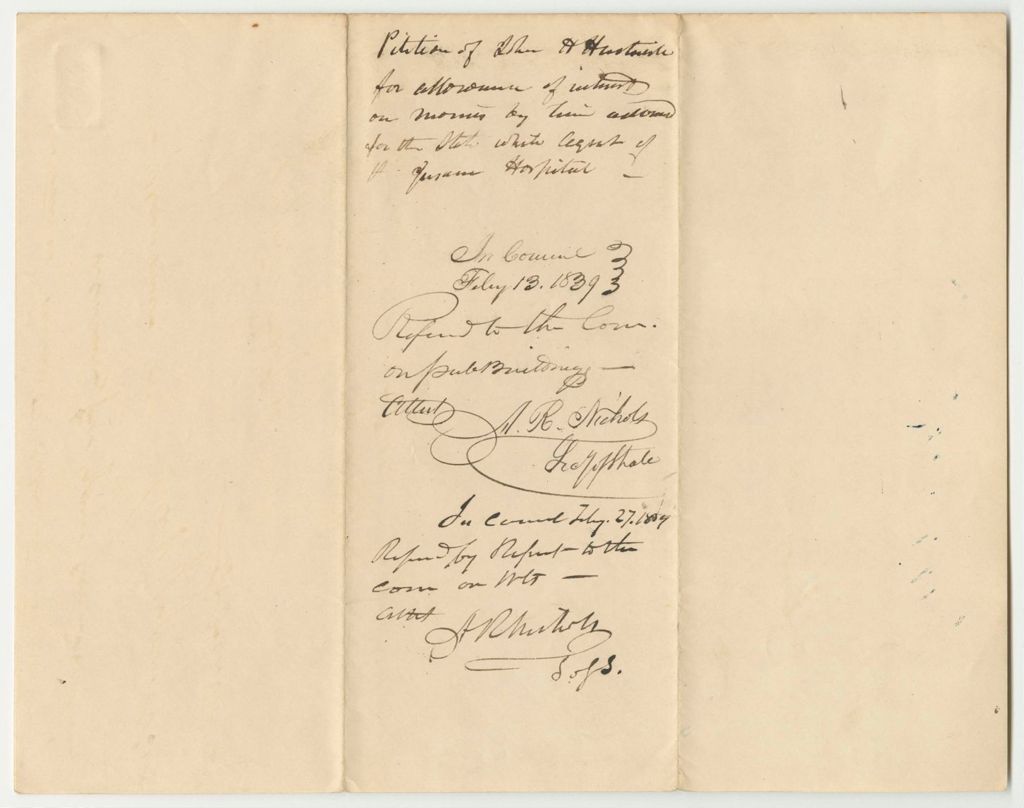 Petition of John H Hartwell
for allowance of interest
on monies by him advanced
for the State while Agent of
Insane Hospital —
In Council
Feby 13. 1839
Referred to the Com.
on pub Buildings —
Attest
A. R. Nichols
Secy of State
In Council Feby. 27. 1839
Referred by Report to the
com on Wts —
Attest
A R Nichols
S of S.